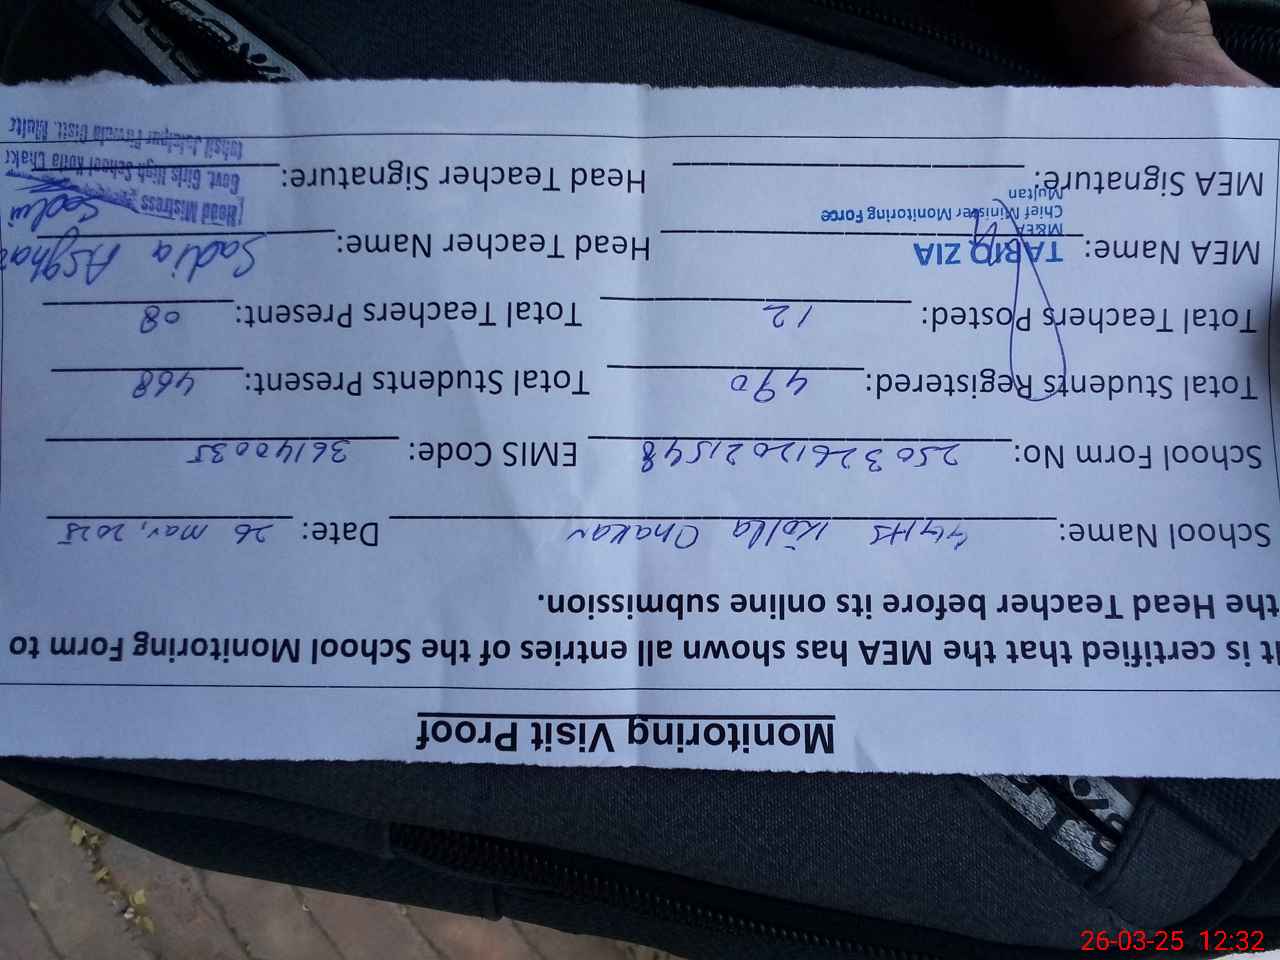 Monitoring Visit Proof
It is certified that the MEA has shown all entries of the School Monitoring Form to
the Head Teacher before its online submission.
School Name: GGHS Kotla Chakar Date: 26 Mar, 2025
School Form No: 25032612021548 EMIS Code: 36140035
Total Students Registered: 490 Total Students Present: 468
Total Teachers Posted: 12 Total Teachers Present: 08
MEA Name: TARIQ ZIA Head Teacher Name: Sadia Asghar
M&EA
Chief Minister Monitoring Force
Multan
MEA Signature: Head Teacher Signature: Sadia
Head Mistress
Govt. Girls High School Kotla Chakr
Tehsil Jalalpur Pirwala Distt. Multr
26-03-25 12:32